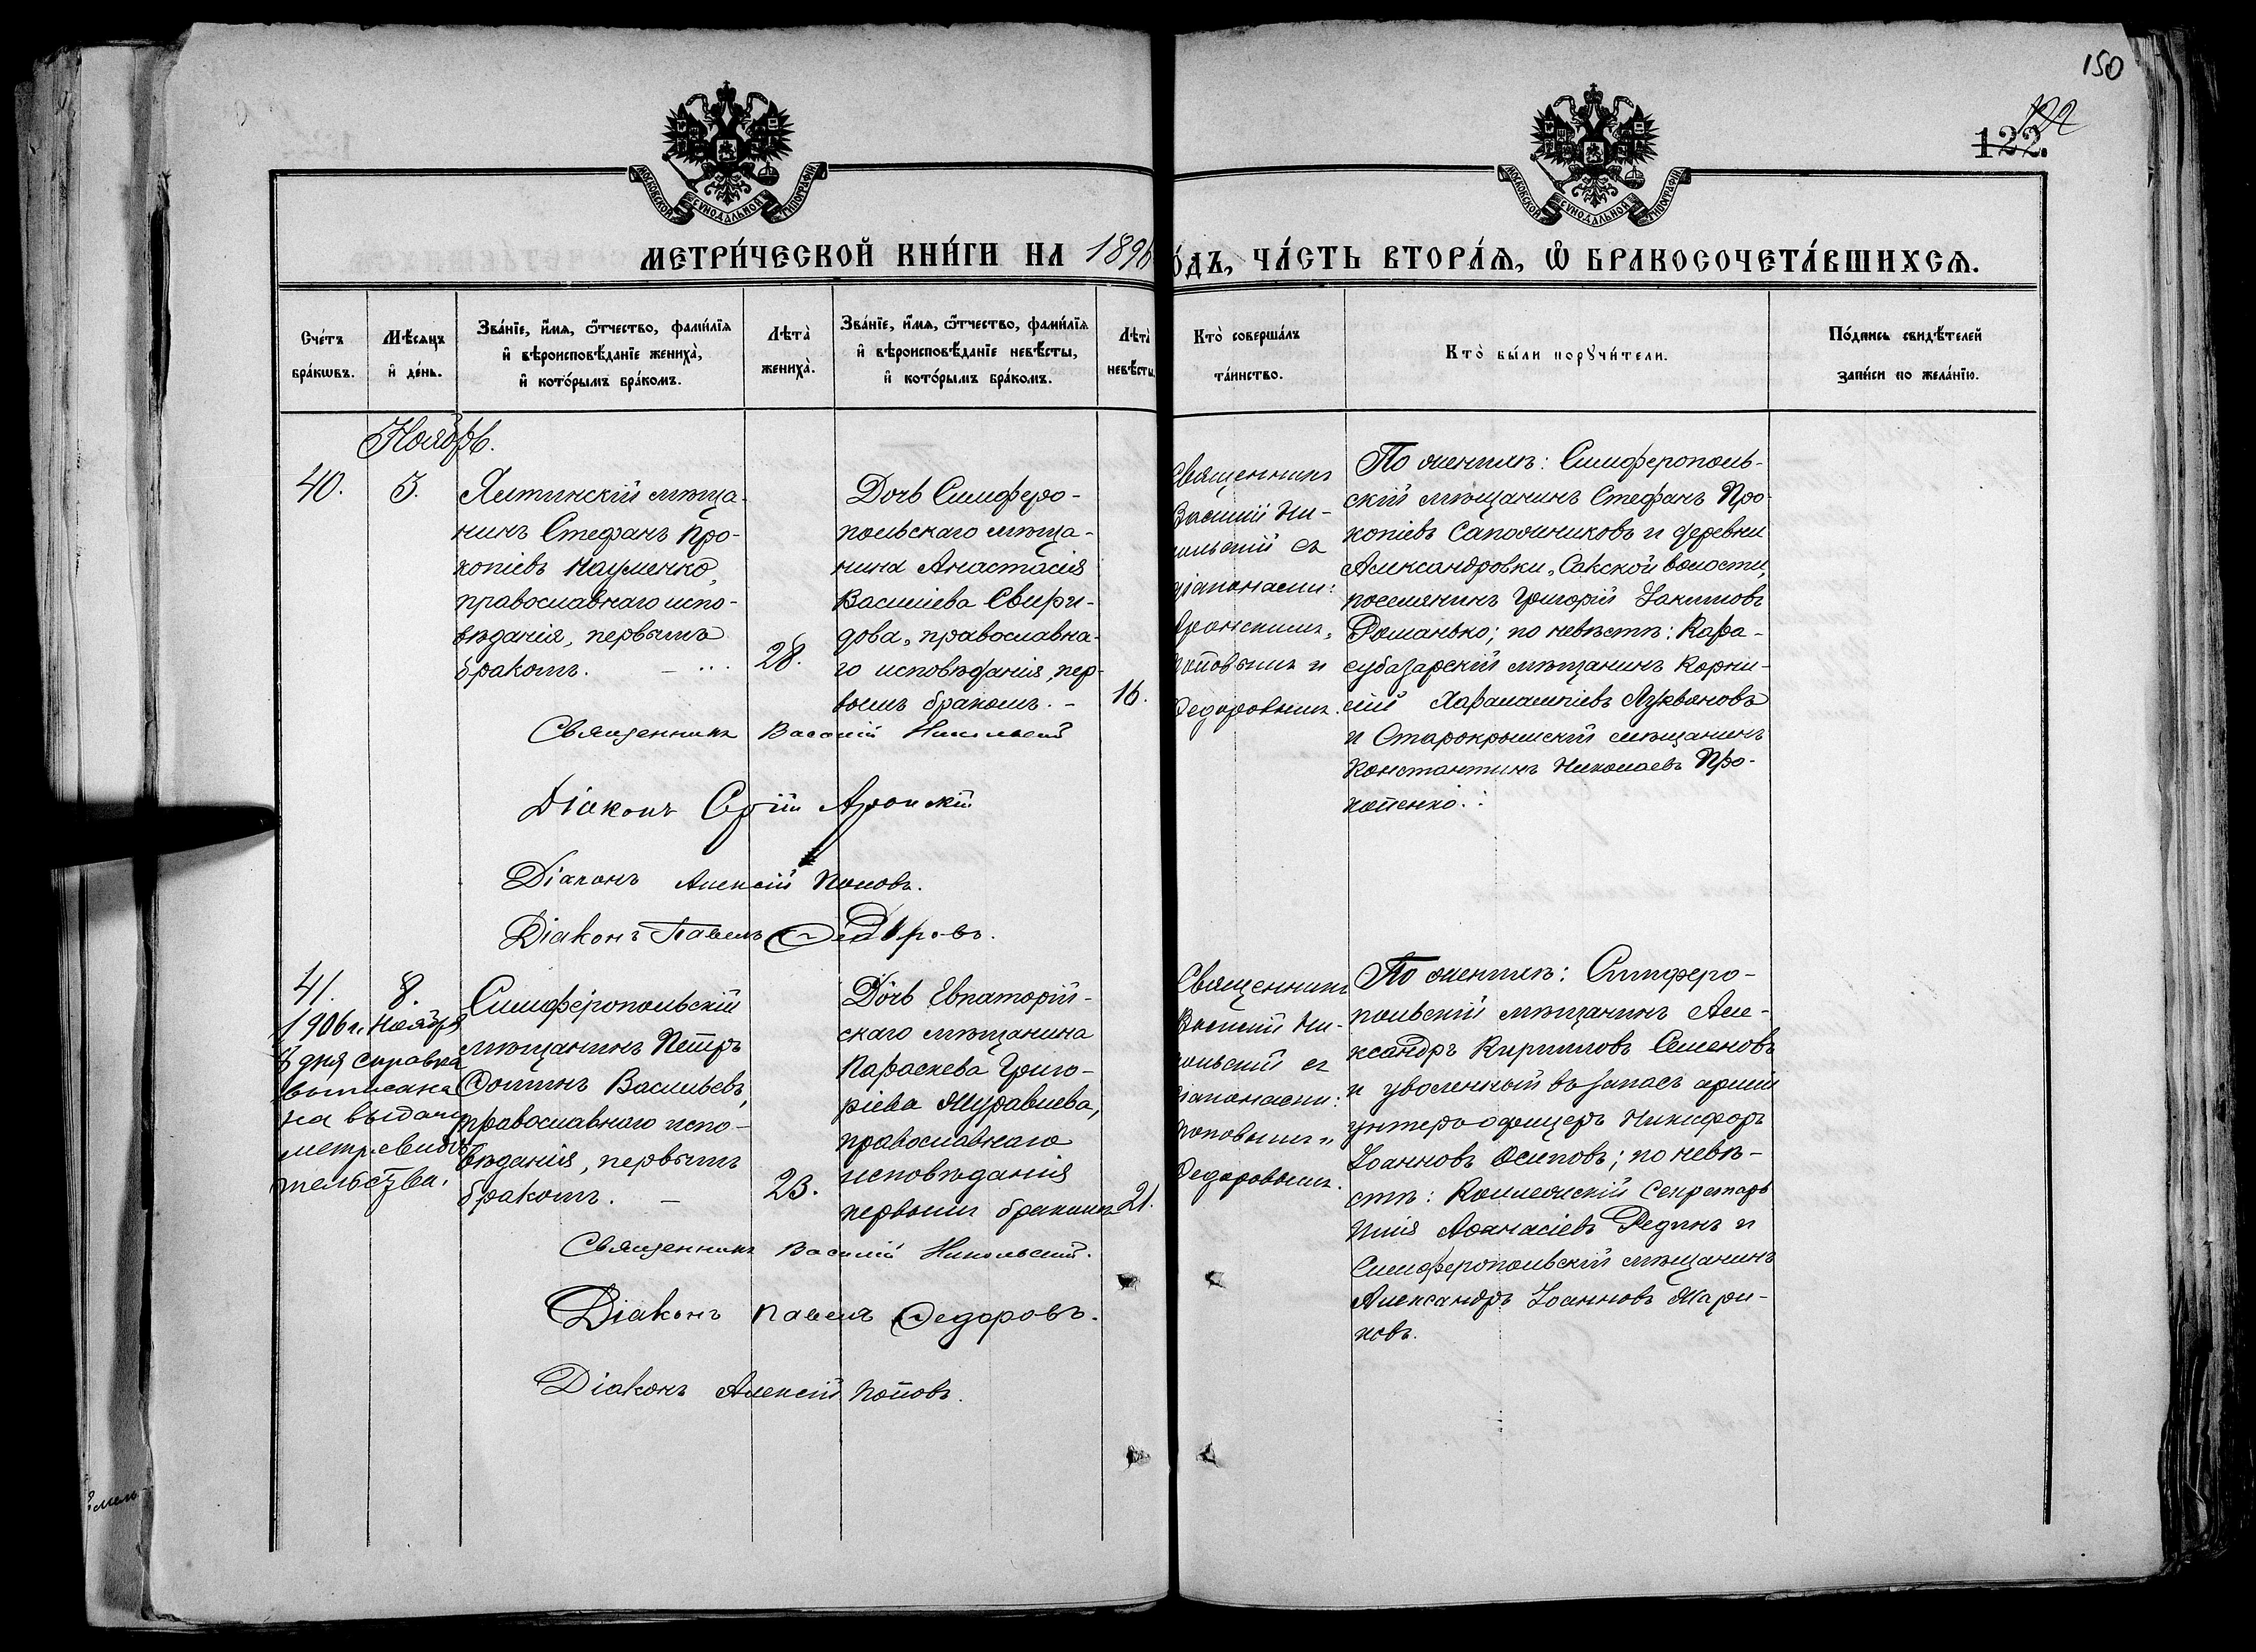 150
122
122.
МОСКОВСКОЙ СѴНОДАЛЬНОЙ ТИПОГРАФІИ
МОСКОВСКОЙ СѴНОДАЛЬНОЙ ТИПОГРАФІИ
МЕТРИ́ЧЕСКОЙ КНИ́ГИ НА 1896
О́ДЪ, ЧА́СТЬ ВТОРА́Ѧ, Ѽ БРАКОСОЧЕТА́ВШИХСѦ.
Сче́тъ
бра́кѡвъ.
Мѣ́сѧцъ
и҆ де́нь.
Зва́нїе, и҆́мѧ, ѻ҆́тчество, фами́лїѧ
и҆ вѣроисповѣ́данїе жениха̀,
и҆ кото́рымъ бра́комъ.
Лѣта̀
жениха̀.
Зва́нїе, и҆́мѧ, ѻ҆́тчество, фами́лїѧ
и҆ вѣроисповѣ́данїе невѣ́сты,
и҆ кото́рымъ бра́комъ.
Лѣта̀
невѣ́сты.
Кто̀ соверша́лъ
та́инство.
Кто̀ бы́ли порꙋчи́тели.
По́дпись свидѣ́телей
за́писи по жела́нїю.
Ноябрь.
40.
3.
Ялтинскій мѣща-
нинъ Стефанъ Про-
копіевъ Науменко,
православнаго испо-
вѣданія, первымъ
бракомъ.
28.
Дочь Симферо-
польскаго мѣща-
нина Анастасія
Василіева Свири-
дова, православна-
го исповѣданія, пер-
вымъ бракомъ. -
16.
Священникъ
Василій Ни-
кольскій съ
діаконами:
Аронскимъ,
Поповымъ и
Федоровымъ.
По женихѣ: Симферополь-
скій мѣщанинъ Стефанъ Про-
копіевъ Сапожниковъ и деревни
Александровки, Сакской волости,
поселянинъ Григорій Іакимовъ
Романько; по невѣстѣ: Кара-
субазарскій мѣщанинъ Корни-
лій Харалампіевъ Лукьяновъ
и Старокрымскій мѣщанинъ
Константинъ Николаевъ Про-
копенко.
Священникъ Василій Никольскій
Діаконъ Сергій Аронскій
Діаконъ Алексій Поповъ.
Діаконъ Павелъ Федоровъ.
41.
8.
1906 г. Ноября
8 дня справка
выписана
на выдачу
метр. свидѣ-
тельства.
Симферопольскій
мѣщанинъ Петръ
Фотинъ Васильевъ,
православнаго испо-
вѣданія, первымъ
бракомъ. -
23.
Дочь Евпаторій-
скаго мѣщанина
Параскева Григо-
ріева Журавлева,
православнаго
исповѣданія
первымъ бракомъ
21.
Священникъ
Василій Ни-
кольскій съ
діаконами:
Поповымъ и
Федоровымъ.
По женихѣ: Симферо-
польскій мѣщанинъ Але-
ксандръ Кирилловъ Семеновъ
и уволенный въ запасъ арміи
унтеръ-офицеръ Никифоръ
Іоанновъ Осиповъ; по невѣ-
стѣ: Коллежскій Секретарь
Илія Аѳанасіевъ Рединъ и
Симферопольскій мѣщанинъ
Александръ Іоанновъ Жари-
ковъ.
Священникъ Василій Никольскій.
Діаконъ Павелъ Федоровъ.
Діаконъ Алексій Поповъ.